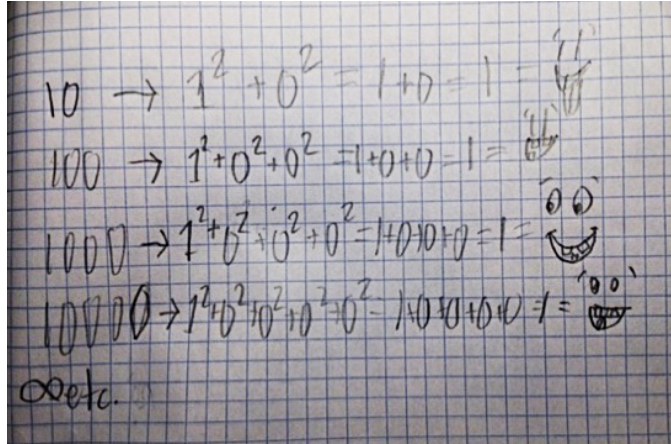 10 → 1² + 0² = 1+0 = 1 =
100 → 1²+0²+0² =1+0+0=1=
1000 → 1²+0²+0²+0²=1+0+0+0=1=
10000 → 1²+0²+0²+0²+0²=1+0+0+0+0=1=
∞etc.